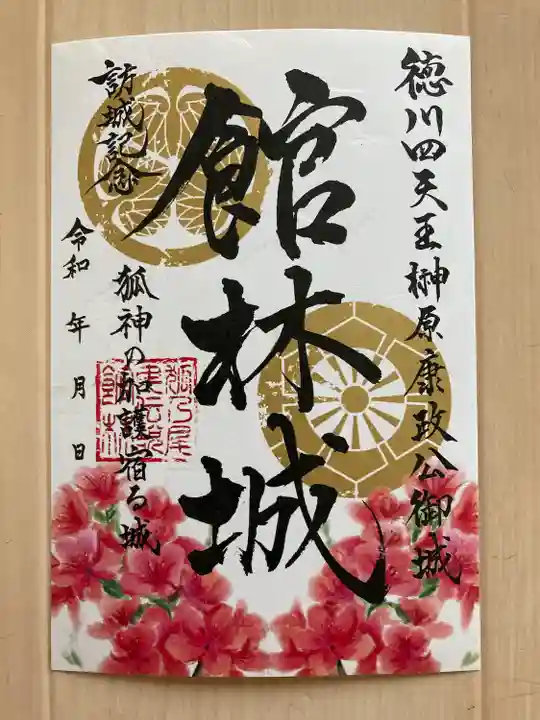 徳川四天王榊原康政公御城
館林城
訪城記念
狐神の加護宿る城
令和 年 月 日